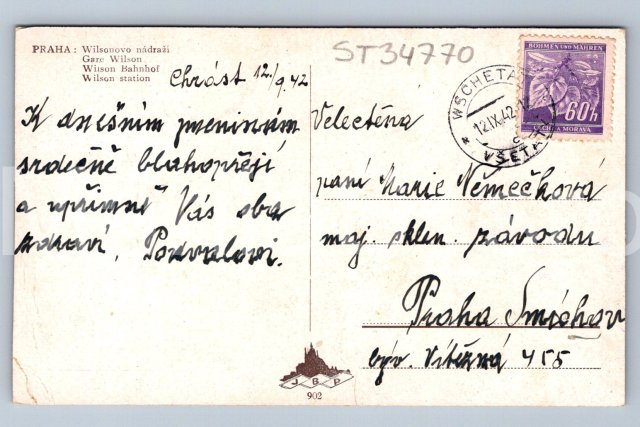 PRAHA: Wilsonovo nádraží
Gare Wilson
Wilson Bahnhof
Wilson station
ST34770
Chrást 12./9.42
K dnešním jmeninám
srdečně blahopřejí
a upřímně Vás oba
zdraví,
Velectěná
paní Marie Němečková
maj. sklen. závodu
Praha Smíchov
Vítězná 455
BÖHMEN UND MÄHREN
60h
ČECHY A MORAVA
WSCHETA
12.IX.42
VŠETAT
JBP
902